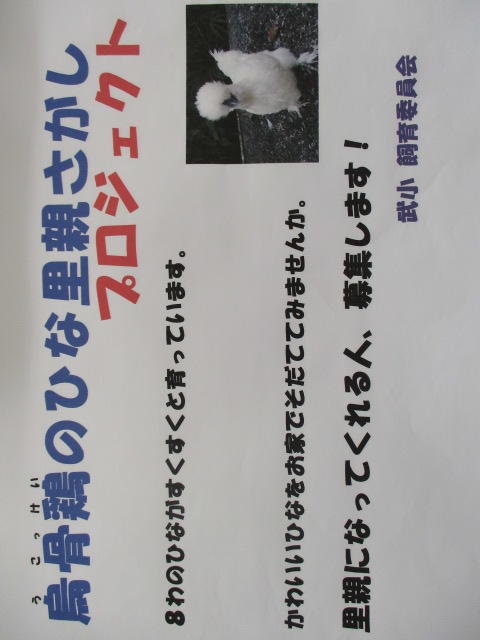 うこっけい
烏骨鶏のひな里親さがし
プロジェクト
8わのひながすくすくと育っています。
かわいいひなをお家でそだててみませんか。
里親になってくれる人、募集します!
武小 飼育委員会